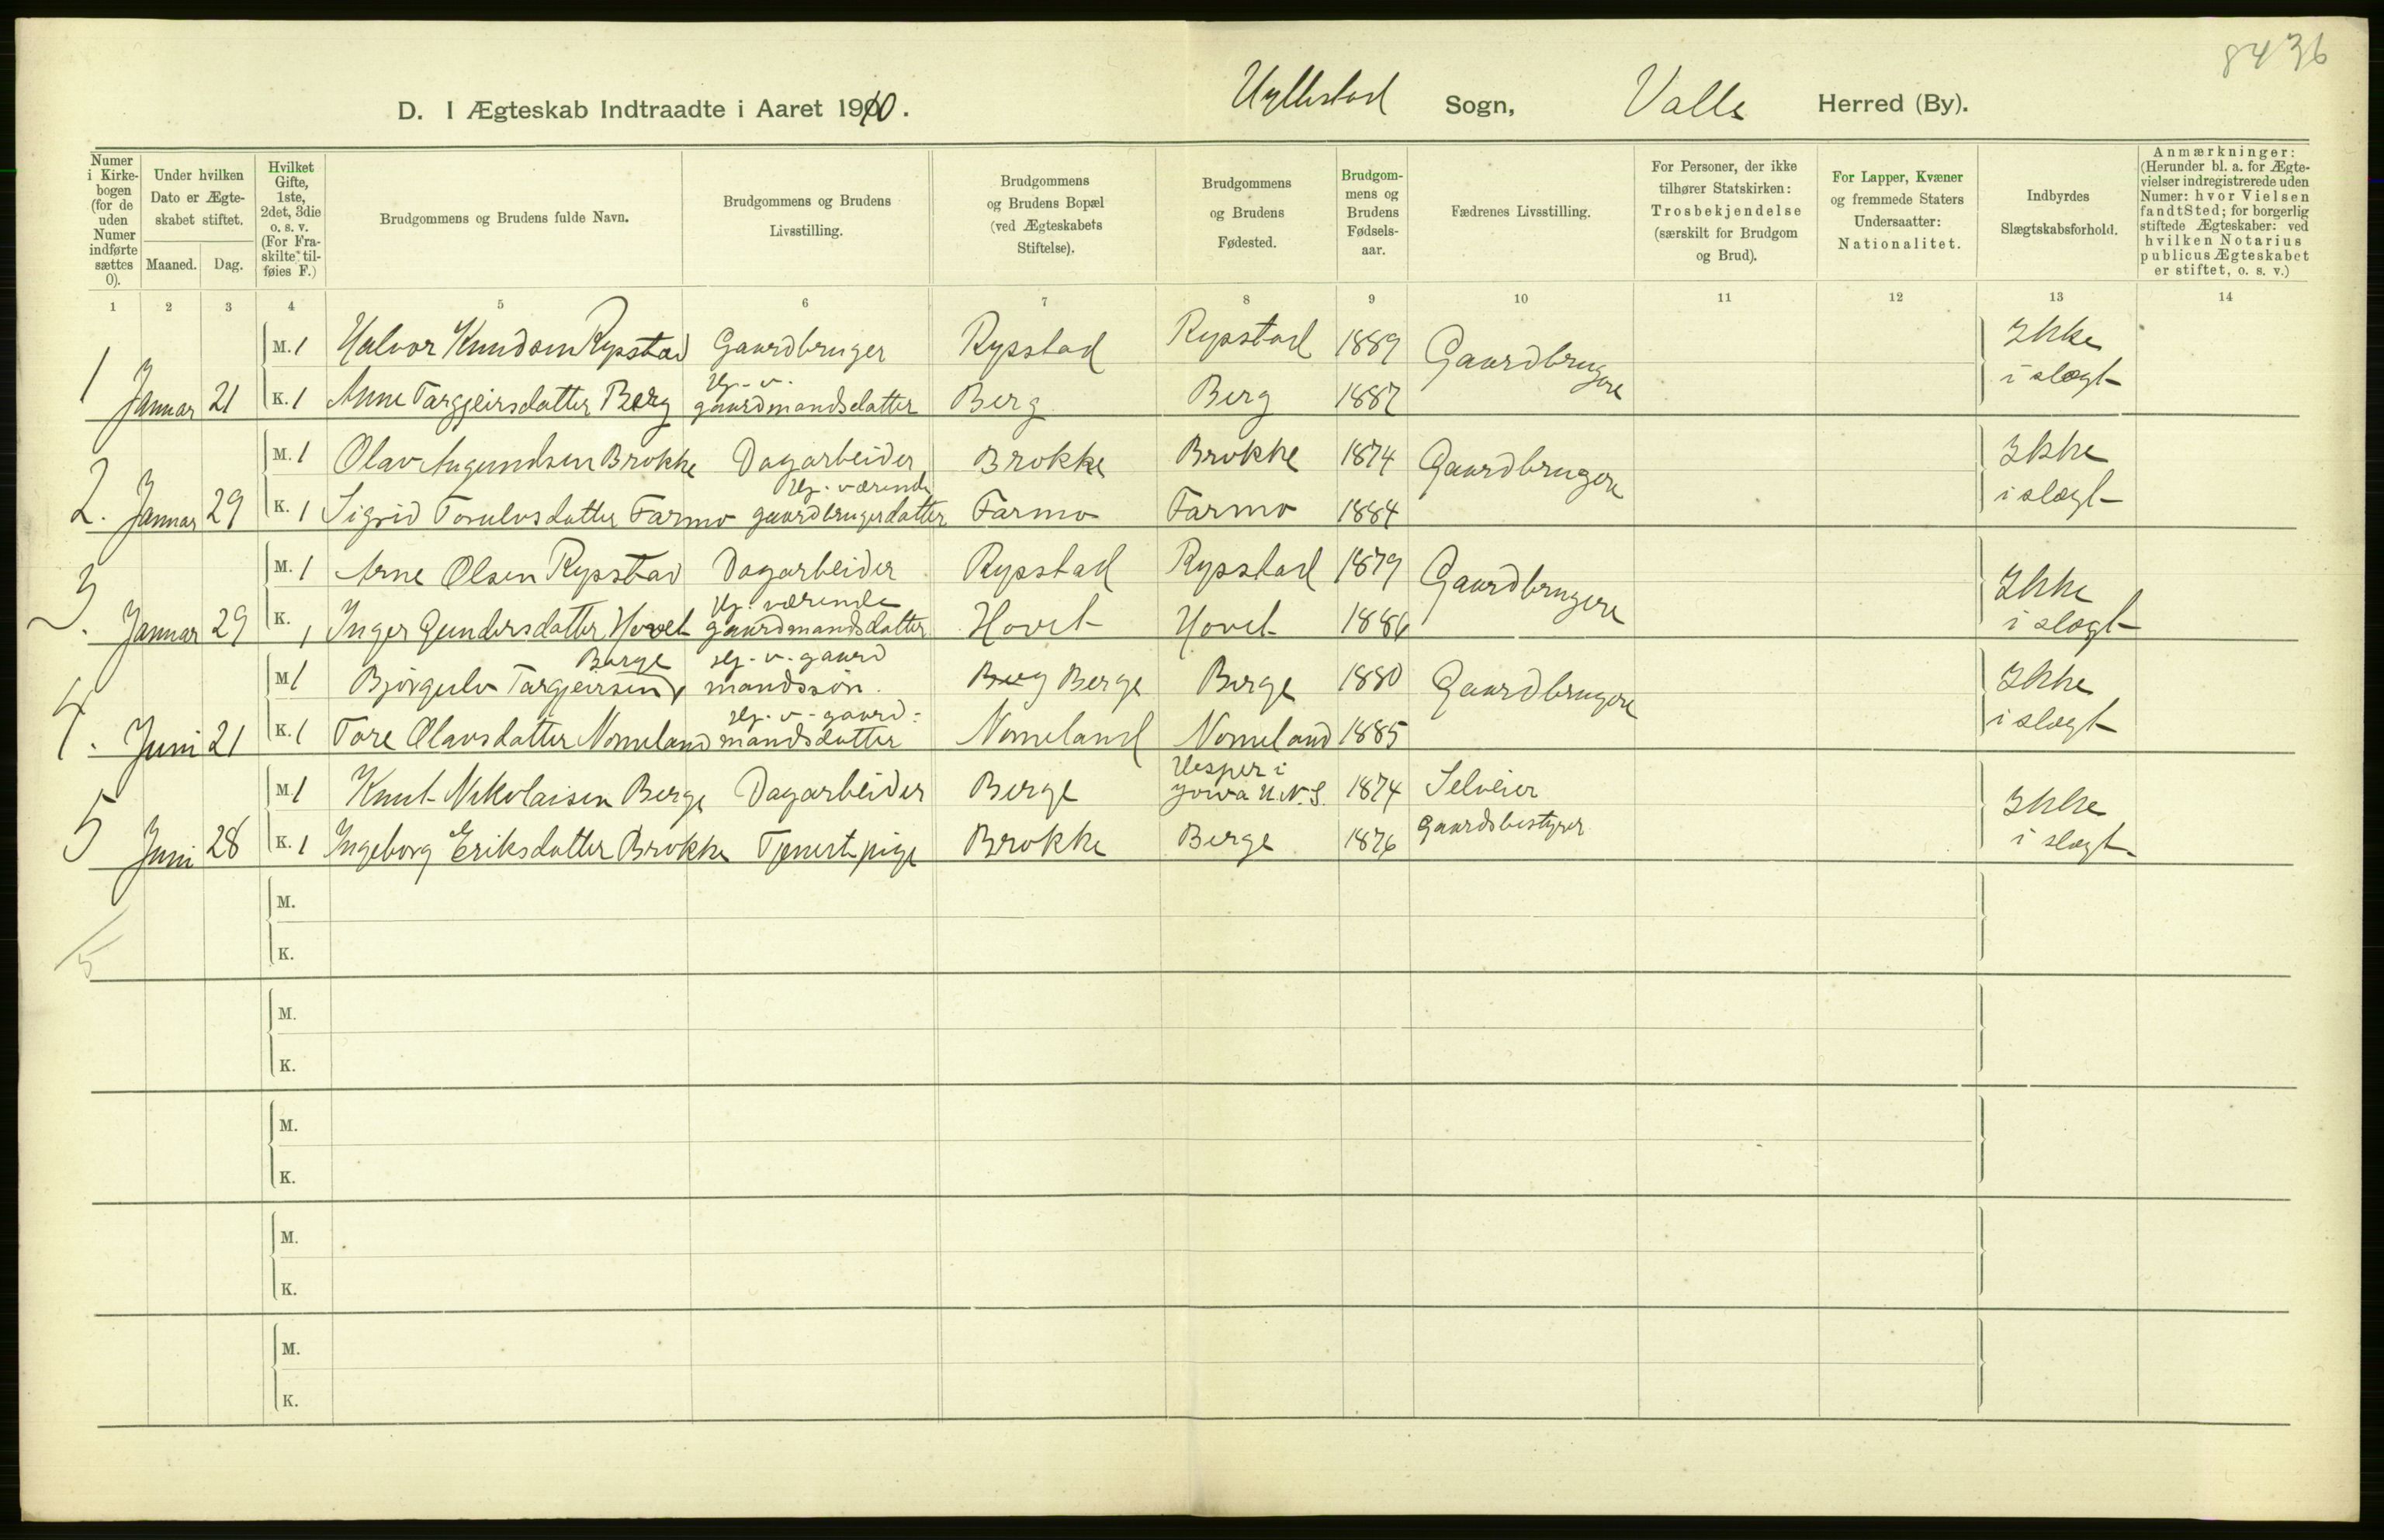 8436
D. I Ægteskab Indtraadte i Aaret 1910.
Hyllestad Sogn, Valle Herred (By).
Numer i Kirkebogen (for de uden Numer indførte sættes 0).
Under hvilken Dato er Ægteskabet stiftet.
Maaned. Dag.
Hvilket Gifte, 1ste, 2det, 3die o. s. v. (For Fraskilte tilføies F.)
Brudgommens og Brudens fulde Navn.
Brudgommens og Brudens Livsstilling.
Brudgommens og Brudens Bopæl (ved Ægteskabets Stiftelse).
Brudgommens og Brudens Fødested.
Brudgommens og Brudens Fødselsaar.
Fædrenes Livsstilling.
For Personer, der ikke tilhører Statskirken: Trosbekjendelse (særskilt for Brudgom og Brud).
For Lapper, Kvæner og fremmede Staters Undersaatter: Nationalitet.
Indbyrdes Slægtskabsforhold.
Anmærkninger: (Herunder bl. a. for Ægtevielser indregistrerede uden Numer: hvor Vielsen fandt Sted; for borgerlig stiftede Ægteskaber: ved hvilken Notarius publicus Ægteskabet er stiftet, o. s. v.)
1 2 3 4 5 6 7 8 9 10 11 12 13 14
M. 1 Halvor Knudsen Rysstad Gaardbruger Rysstad Rysstad 1889 Gaardbrugere Ikke
1 Januar 21 K. 1 Anne Targjeirsdatter Berg hj. v. gaardmandsdatter Berg Berg 1887 i slægt
M. 1 Olav Augundsen Brokke Dagarbeider Brokke Brokke 1874 Gaardbrugere Ikke
2. Januar 29 K. 1 Sigrid Torulvsdatter Farmo hj. værende gaardbrugerdatter Farmo Farmo 1884 i slægt
M. 1 Arne Olsen Rysstad Dagarbeider Rysstad Rysstad 1879 Gaardbrugere Ikke
3. Januar 29 K. 1 Inger Gundersdatter Hovet hj. værende gaardmandsdatter Hovet Hovet 1886 i slægt
M 1 Bjørgulv Targjeirsen Berge hj. v. gaardmandssøn. Berg Berge Berge 1880 Gaardbrugere Ikke
4. Juni 21 K. 1 Tore Olavsdatter Nomeland hj. v. gaardmandsdatter Nomeland Nomeland 1885 i slægt
M. 1 Knut Nikolaisen Berge Dagarbeider Berge Vesper i Jowa U.N.S. 1874 Selveier Ikke
5 Juni 28 K. 1 Ingeborg Eriksdatter Brokke Tjenestpige Brokke Berge 1876 Gaardsbestyrer i slægt
M.
K.
5
M.
K.
M.
K.
M.
K.
M.
K.